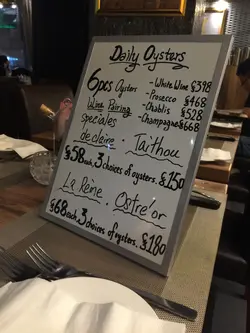 Daily Oysters
6pcs Oyster - White Wine $398
Wine Pairing - Prosecco $468
- Chablis $528
- Champagne $668
speciales
de claire, Taithou
$58 each, 3 choices of oysters, $150
La Reine, Ostre'or
$68 each, 3 choices of oysters, $180